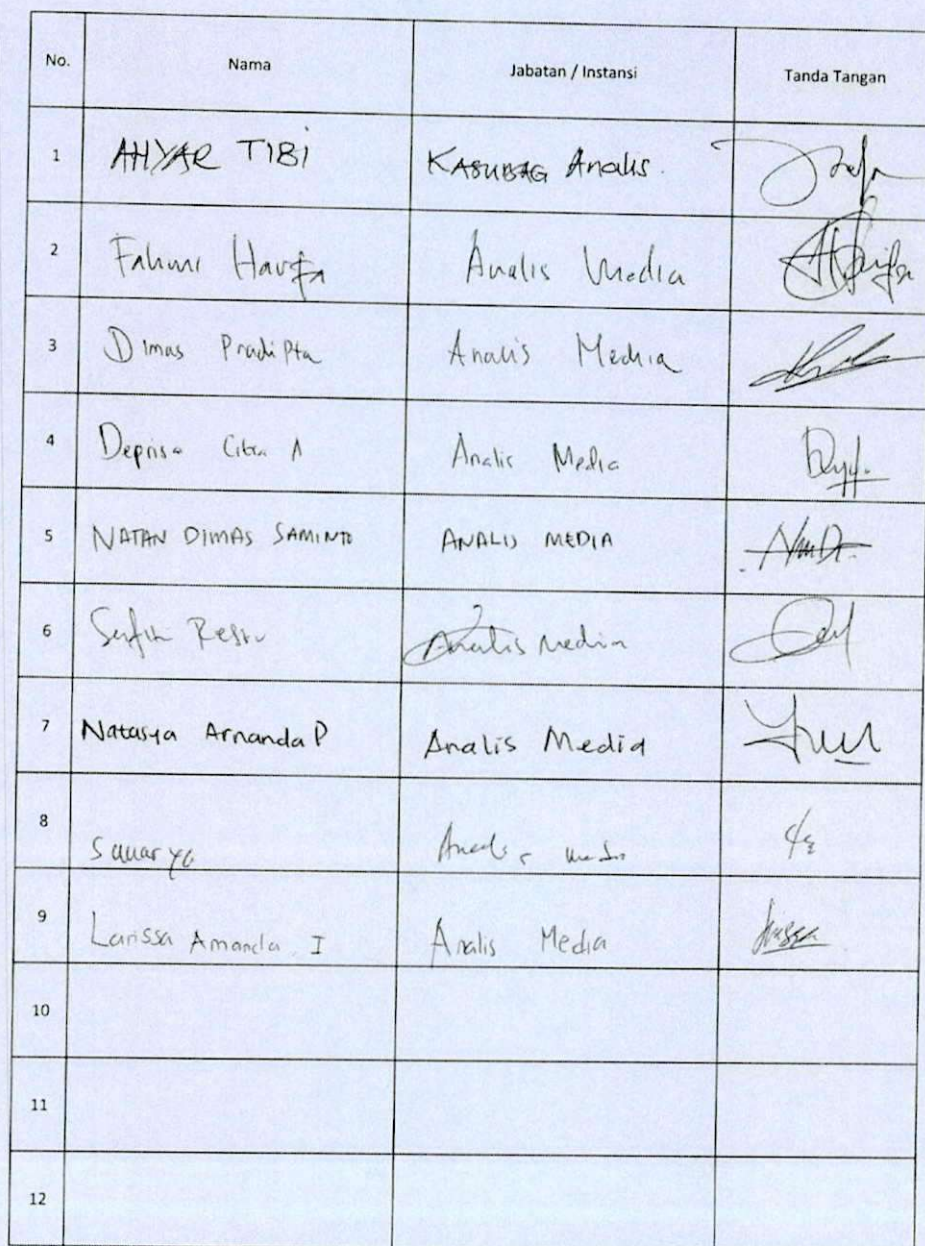 No. Nama Jabatan / Instansi Tanda Tangan
1 AHYAR TIBI KASUBAG Analis
2 Fahmi Analis Media
3 Dimas Pradipta Analis Media
4 Deprisa Citra A Analis Media
5 NATAN DIMAS SAMINTO ANALIS MEDIA
6 Analis Media
7 Natasya Arnanda P Analis Media
8 Sunaryo
9 Larissa Amanda I Analis Media
10
11
12